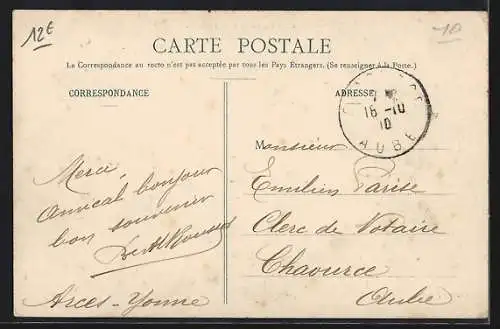 12€
-10
CARTE POSTALE
La Correspondance au recto n'est pas acceptée par tous les Pays Étrangers. (Se renseigner à la Poste.)
CORRESPONDANCE
ADRESSE
16 -10
10
AUBE
Merci,
Amical bonjour
bon souvenir
Arces - Yonne
Monsieur
Emilien Parise
Clerc de Notaire
Chaource
Aube